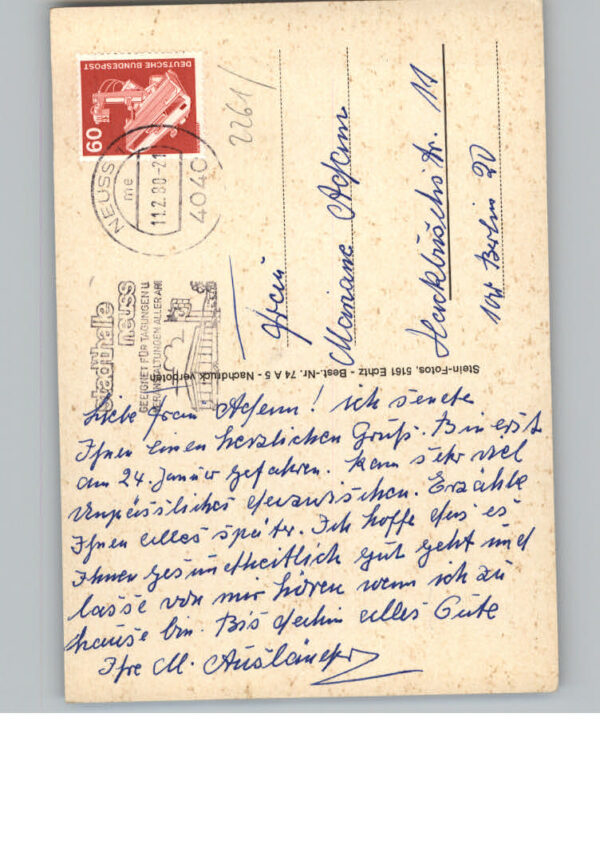 DEUTSCHE BUNDESPOST
60
NEUSS
me
11.2.80-21
4040
2261/
stadthalle
neuss
GEEIGNET FÜR TAGUNGEN U
VERANSTALTUNGEN ALLER ART
Frau
Mariane
11
Berlin 20
Stein-Fotos, 5161 Echtz - Best.-Nr. 74 A 5 - Nachdruck verboten
Liebe Frau ! ich sende
Ihnen einen herzlichen Gruß. Bin erst
am 24. Januar gefahren. Kam sehr viel
Unpässliches dazwischen. Erzähle
Ihnen alles später. Ich hoffe das es
Ihnen gesundheitlich gut geht und
lasse von mir hören wenn ich zu
hause bin. Bis dahin alles Gute
Ihre M. Ausländer